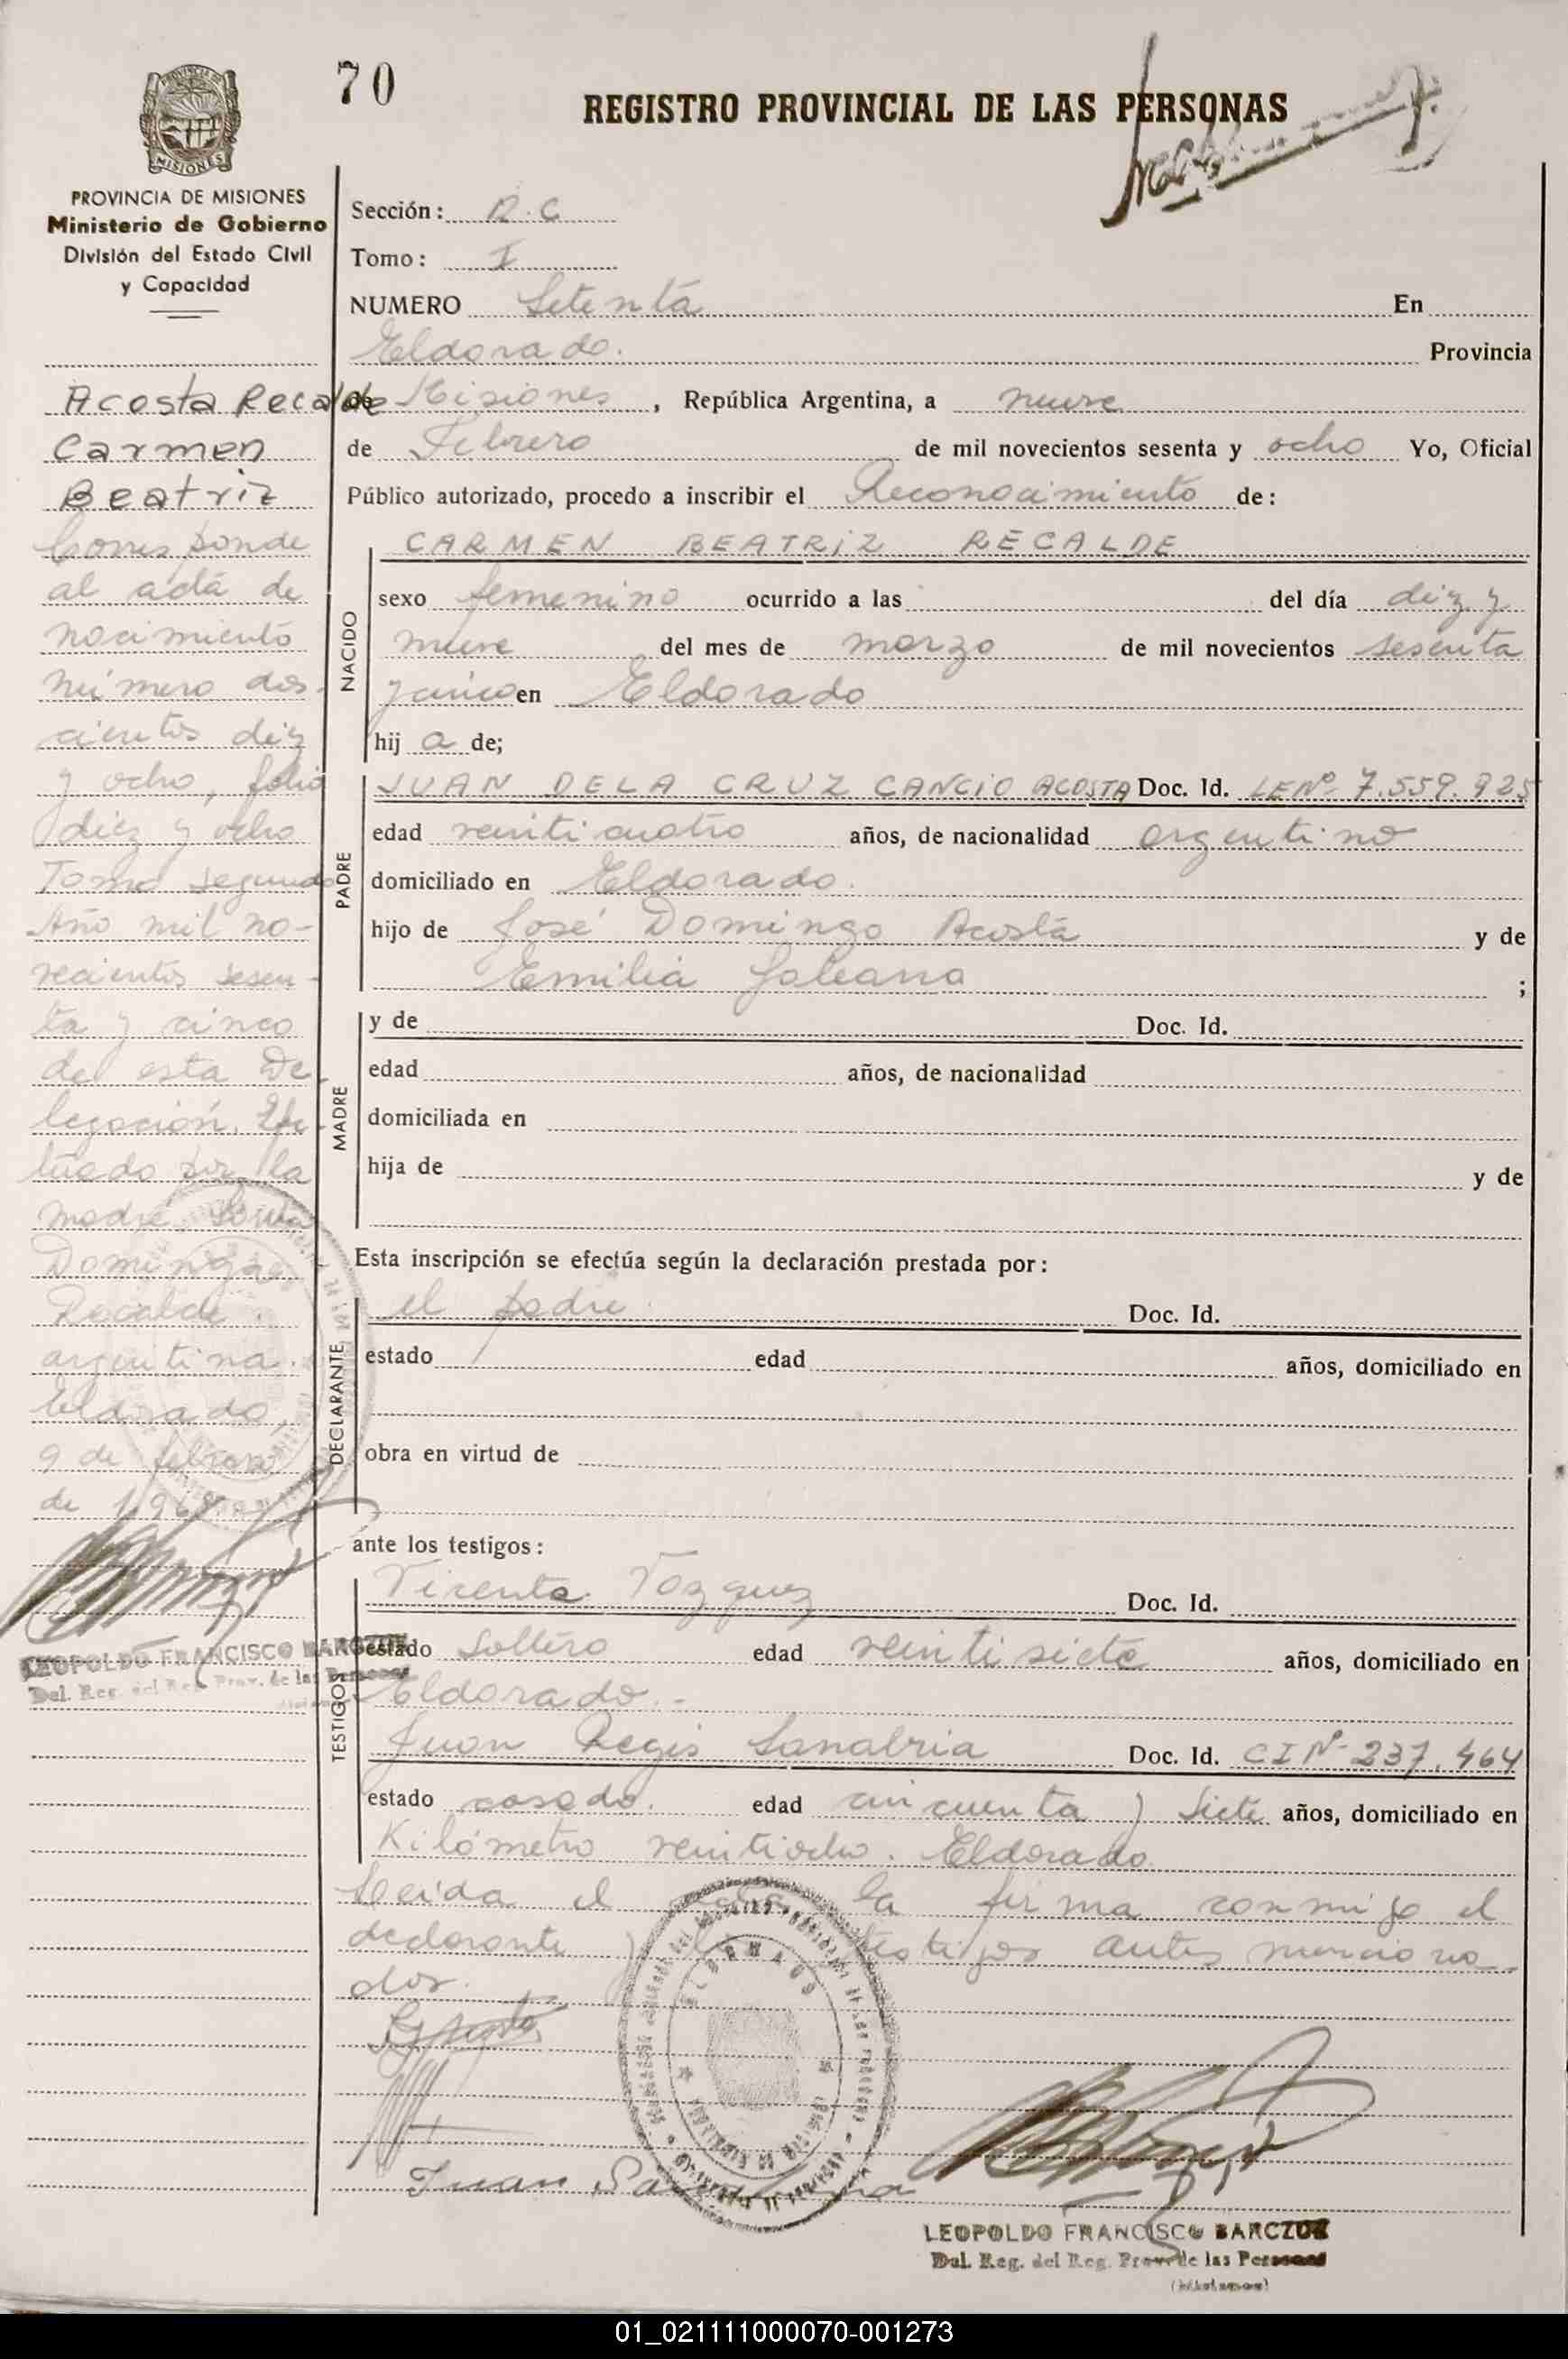 70
REGISTRO PROVINCIAL DE LAS PERSONAS
PROVINCIA DE MISIONES
Ministerio de Gobierno
División del Estado Civil
y Capacidad
Acosta Recalde
Carmen
Beatriz
Corresponde
al acta de
nacimiento
número dos-
cientos diez
y ocho, folio
diez y ocho
Tomo segundo
Año mil no-
vecientos sesen-
ta y cinco
de esta De-
legación. Efec
tuado por la
madre
Recalde.
argentina.
Eldorado,
9 de febrero
de 1968
LEOPOLDO FRANCISCO BARCZUK
Del. Reg. del Reg. Prov. de las Personas
Sección: R.C
Tomo: I
NUMERO Setenta En
Eldorado. Provincia
de Misiones, República Argentina, a nueve
de Febrero de mil novecientos sesenta y ocho Yo, Oficial
Público autorizado, procedo a inscribir el Reconocimiento de:
NACIDO
CARMEN BEATRIZ RECALDE
sexo femenino ocurrido a las del día diez y
nueve del mes de marzo de mil novecientos sesenta
y cinco en Eldorado
hij a de;
PADRE
JUAN DE LA CRUZ CANCIO ACOSTA Doc. Id. LE Nº 7.559.925
edad veinticuatro años, de nacionalidad argentino
domiciliado en Eldorado.
hijo de José Domingo Acosta y de
Emilia Galeano ;
MADRE
y de Doc. Id.
edad años, de nacionalidad
domiciliada en
hija de y de
Esta inscripción se efectúa según la declaración prestada por:
DECLARANTE
el padre. Doc. Id.
estado edad años, domiciliado en
obra en virtud de
ante los testigos:
TESTIGOS
Vicente Vazquez Doc. Id.
estado soltero edad veintisiete años, domiciliado en
Eldorado.-
Juan Regis Sanabria Doc. Id. CI Nº 237.464
estado casado. edad cincuenta y siete años, domiciliado en
Kilómetro veintiocho. Eldorado.
Leida el acta la firma conmigo el
declarante y los testigos antes menciona-
dos.
ELDORADO
Juan Sanabria
LEOPOLDO FRANCISCO BARCZUK
Del. Reg. del Reg. Prov. de las Personas
01_021111000070-001273